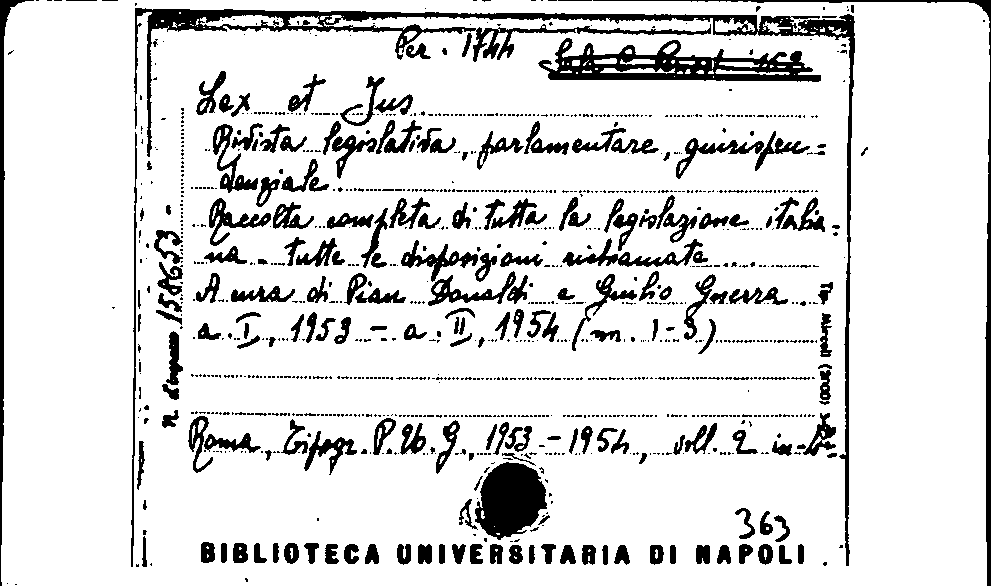 Per. 1744
Lex et Jus.
Rivista legislativa, parlamentare, giurispru=
denziale.
Raccolta completa di tutta la legislazione italia=
na - tutte le disposizioni richiamate ...
A cura di Pian Donaldi e Giulio Guerra.
a. I, 1953 - a. II, 1954 (m. 1-3)
Roma, Tipogr. P. Ub. G., 1953 - 1954, voll. 2 in-
363
BIBLIOTECA UNIVERSITARIA DI NAPOLI
n. d'ingresso 158653 -